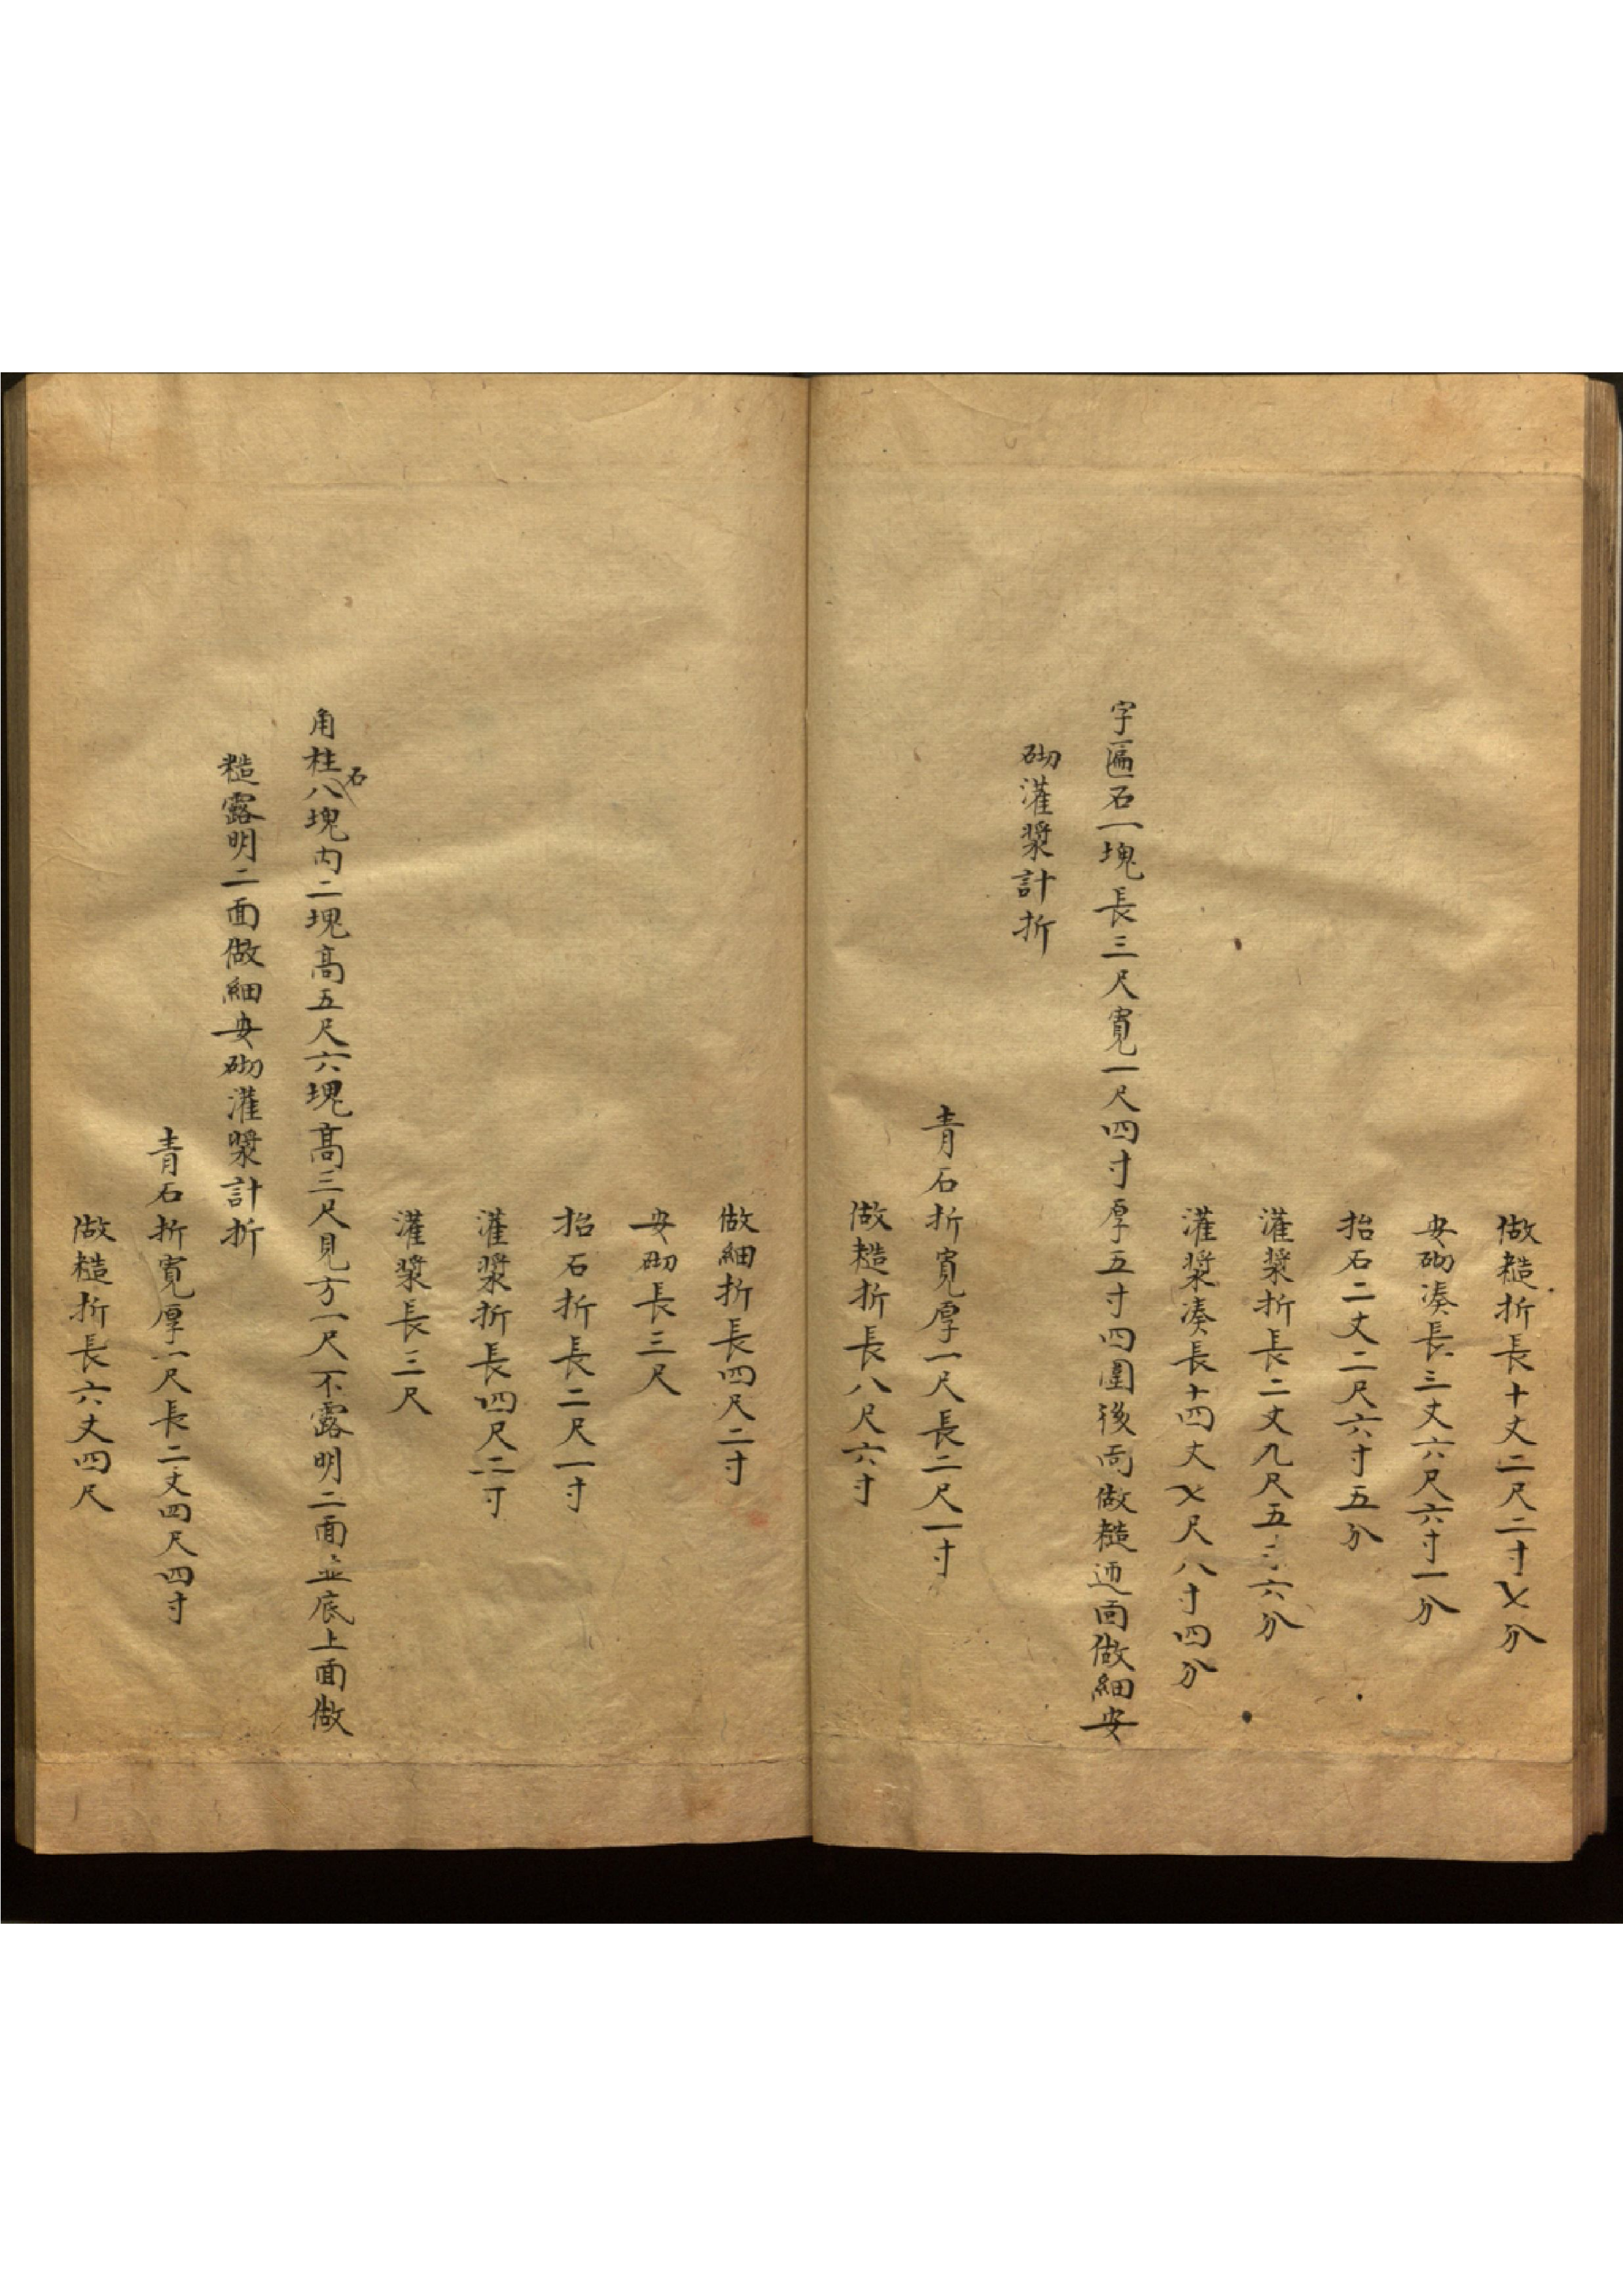 做糙折長十丈二尺二寸七分
安砌湊長三丈六尺六寸一分
抬石二丈二尺六寸五分
灌漿折長二丈九尺五寸六分
灌漿湊長十四丈七尺八寸四分
字匾石一塊長三尺寬一尺四寸厚五寸四圍後面做糙迎面做細安
砌灌漿計折
青石折寬厚一尺長二尺一寸
做糙折長八尺六寸
做細折長四尺二寸
安砌長三尺
抬石折長二尺一寸
灌漿折長四尺二寸
灌漿長三尺
角柱石八塊内二塊高五尺六塊高三尺見方一尺不露明二面並底上面做
糙露明二面做細安砌灌漿計折
青石折寬厚一尺長二丈四尺四寸
做糙折長六丈四尺